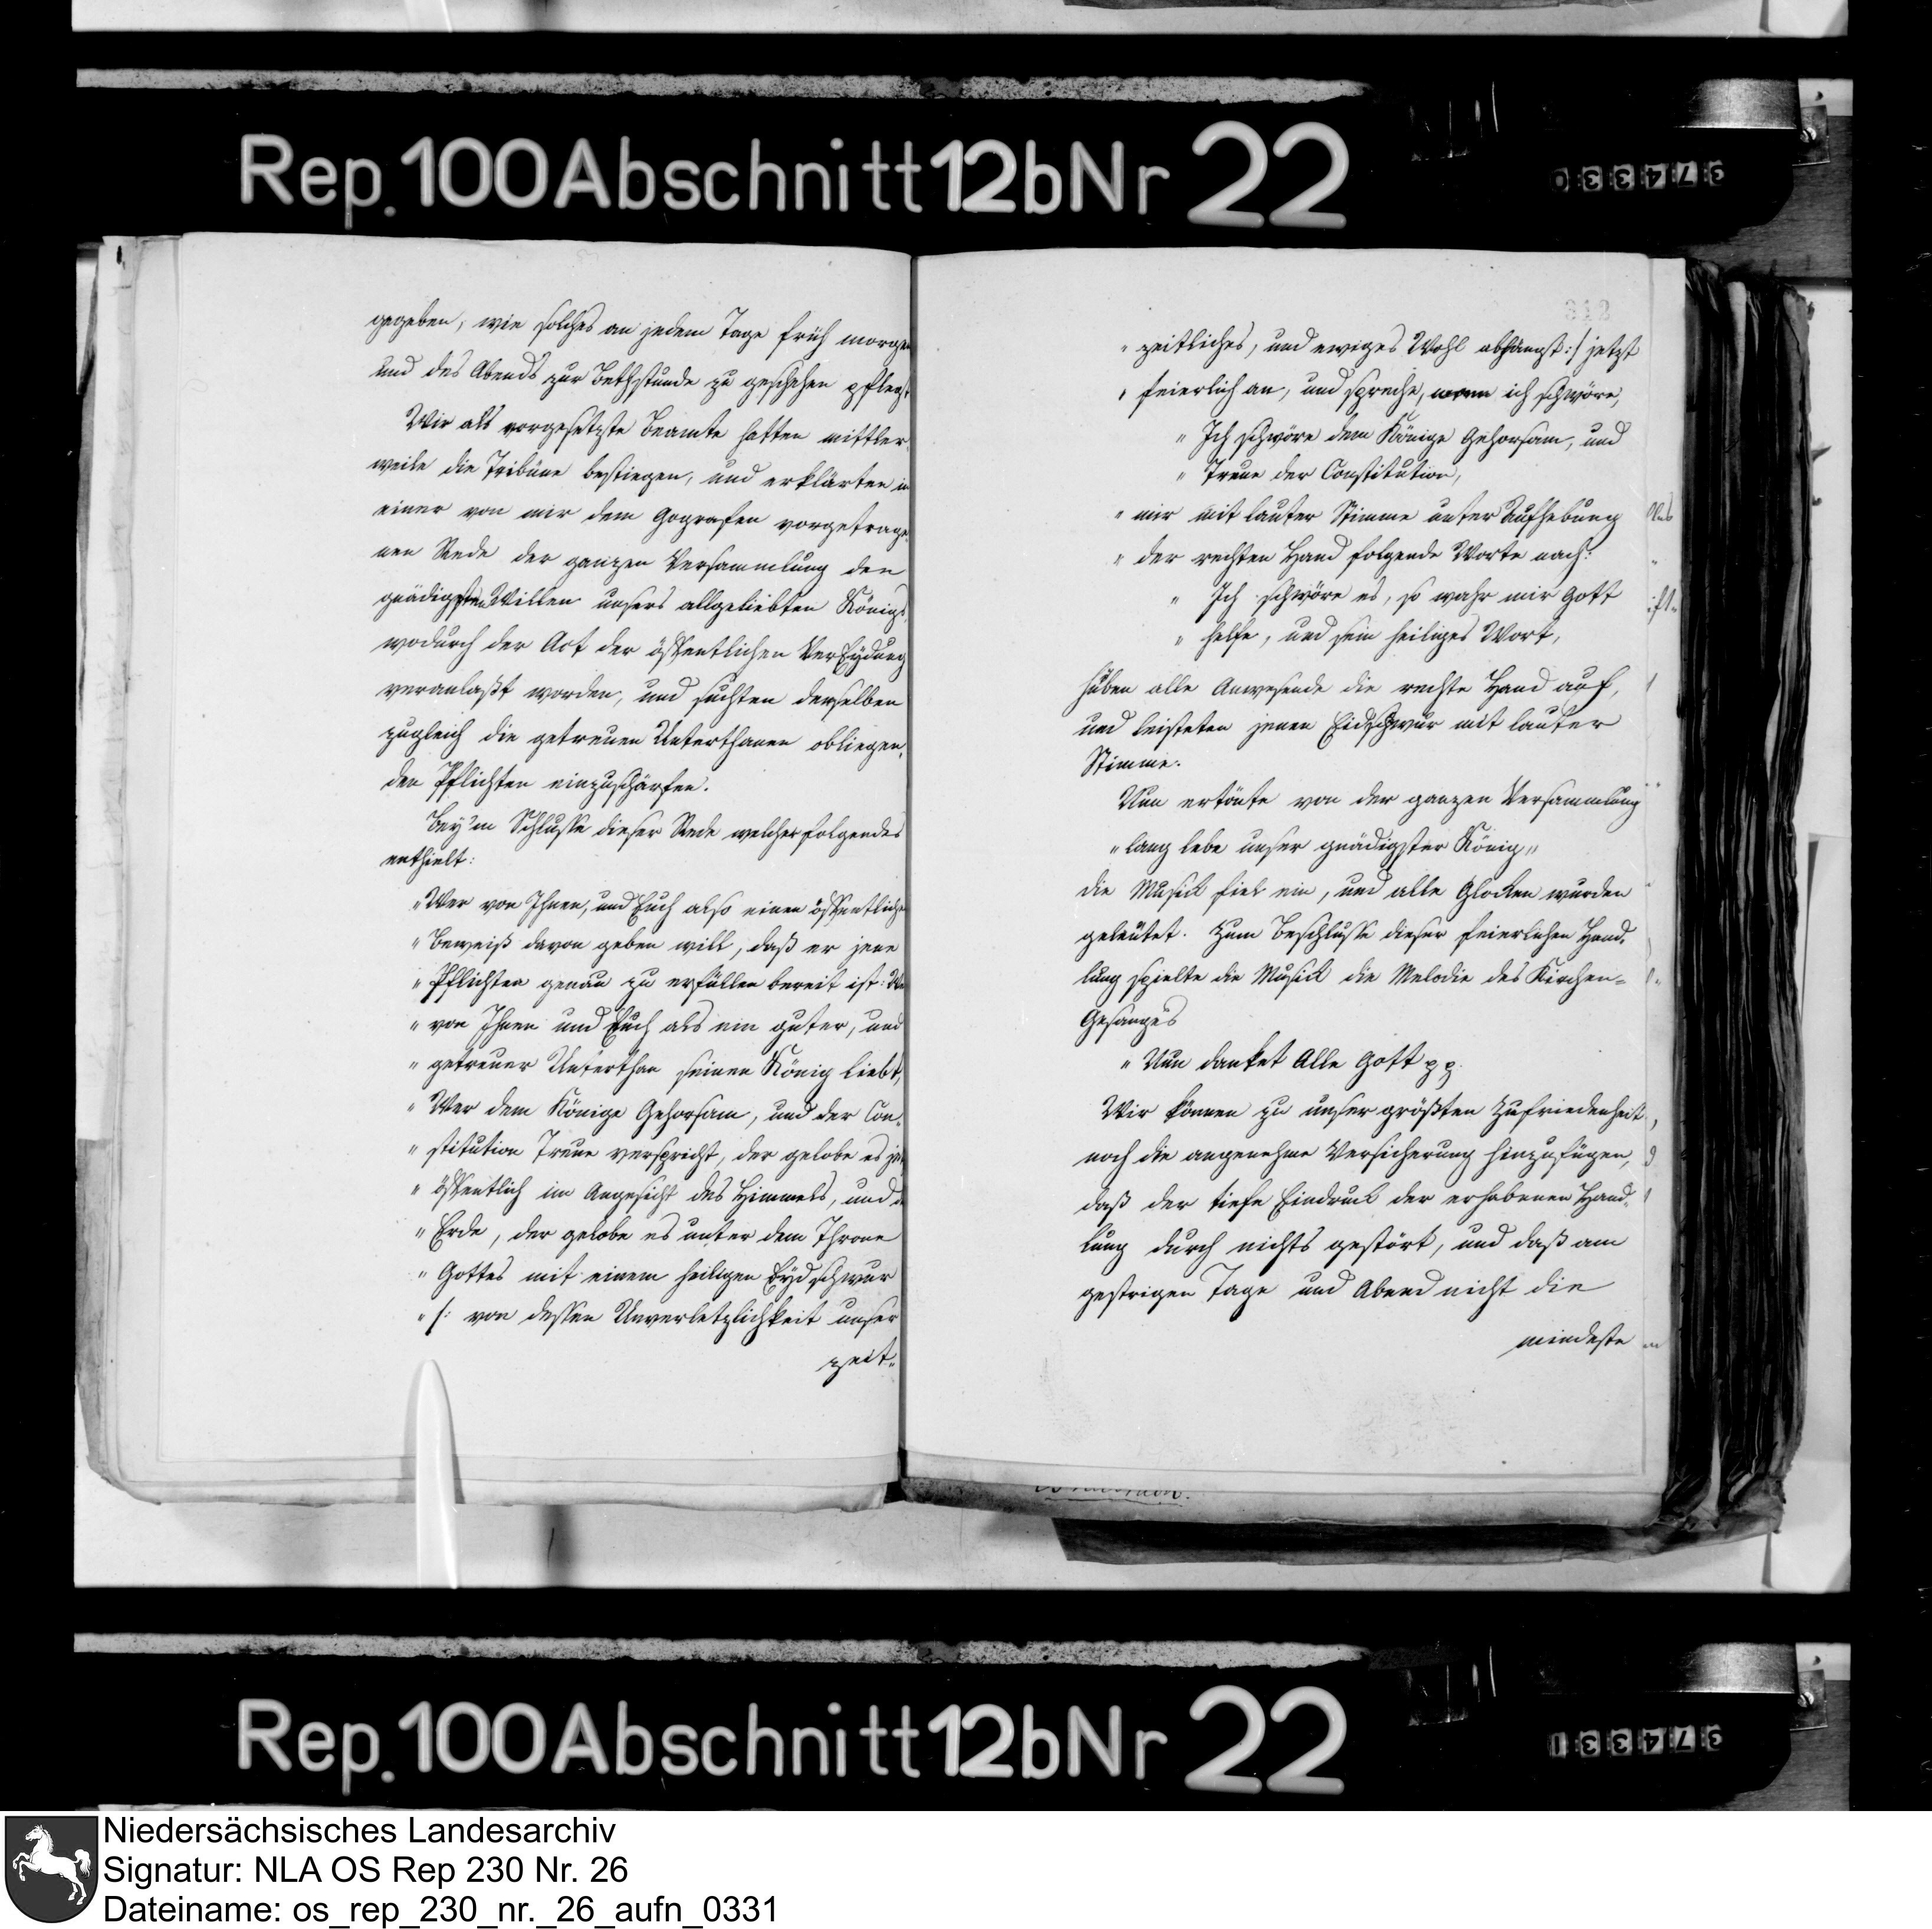 Rep. 100 Abschnitt 12b Nr 22
374330
gegeben, wie solches an jedem Tage früh morgen
und des Abends zur Bethstunde zu geschehen pflegt.
Wir als vorgesetzte Beamte hatten mittler
weile die Tribüne bestiegen, und erklärten in
einer von mir dem Gografen vorgetrage
nen Rede der ganzen Versammlung den
gnädigsten Willen unsers allgeliebten Königs,
wodurch der Act der öffentlichen VerEydung
veranlaßt worden, und suchten derselben
zugleich die getreuen Unterthanen obliegen,
den Pflichten einzuschärfen.
Bey'm Schlusse dieser Rede welcher folgendes
enthielt:
"Wer von Ihnen, und Euch also einen öffentlichen
" Beweiß davon geben will, daß er jene
" Pflichten genau zu erfüllen bereit ist: Wer
" von Ihnen und Euch als ein guter, und
" getreuer Unterthan seinen König liebt,
" Wer dem Könige Gehorsam, und der Con,
" stitution Treue verspricht, der gelobe es
" öffentlich im Angesicht des Himmels, und
" Erde, der gelobe es unter dem Throne
" Gottes mit einem heiligen Eydschwur
" /: von dessen Unverletzlichkeit unser
zeit,,
312
" zeitliches, und ewiges Wohl abhängt :/ jetzt
" feierlich an, und spreche, wenn ich schwöre,
" Ich schwöre dem Könige Gehorsam, und
" Treue der Constitution,
" mir mit lauter Stimme unter Aufhebung
" der rechten Hand folgende Worte nach:
" Ich schwöre es, so wahr mir Gott
" helfe, und sein heiliges Wort,
huben alle Anwesende die rechte Hand auf,
und leisteten jenen Eidschwur mit lauter
Stimme.
Nun ertönte von der ganzen Versammlung
" lang lebe unser gnädigster König "
die Musick fiel ein, und alle Glocken wurden
geläutet. Zum Beschlusse dieser feierlichen Hand,
lung spielte die Musick die Melodie des Kirchen=
Gesanges
" Nun danket Alle Gott pp.
Wir können zu unser größten Zufriedenheit
noch die angenehme Versicherung hinzufügen,
daß der tiefe Eindruck der erhabenen Hand,
lung durch nichts gestört, und daß am
gestrigen Tage und Abend nicht die
mindeste
Rep. 100 Abschnitt 12b Nr 22
374331
Niedersächsisches Landesarchiv
Signatur: NLA OS Rep 230 Nr. 26
Dateiname: os_rep_230_nr._26_aufn_0331